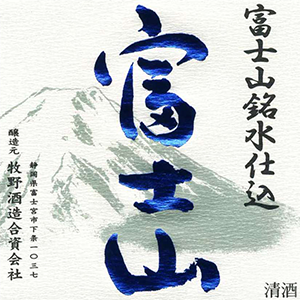 富士山銘水仕込
富士山
静岡県富士宮市下条一〇三七
醸造元
牧野酒造合資会社
清酒